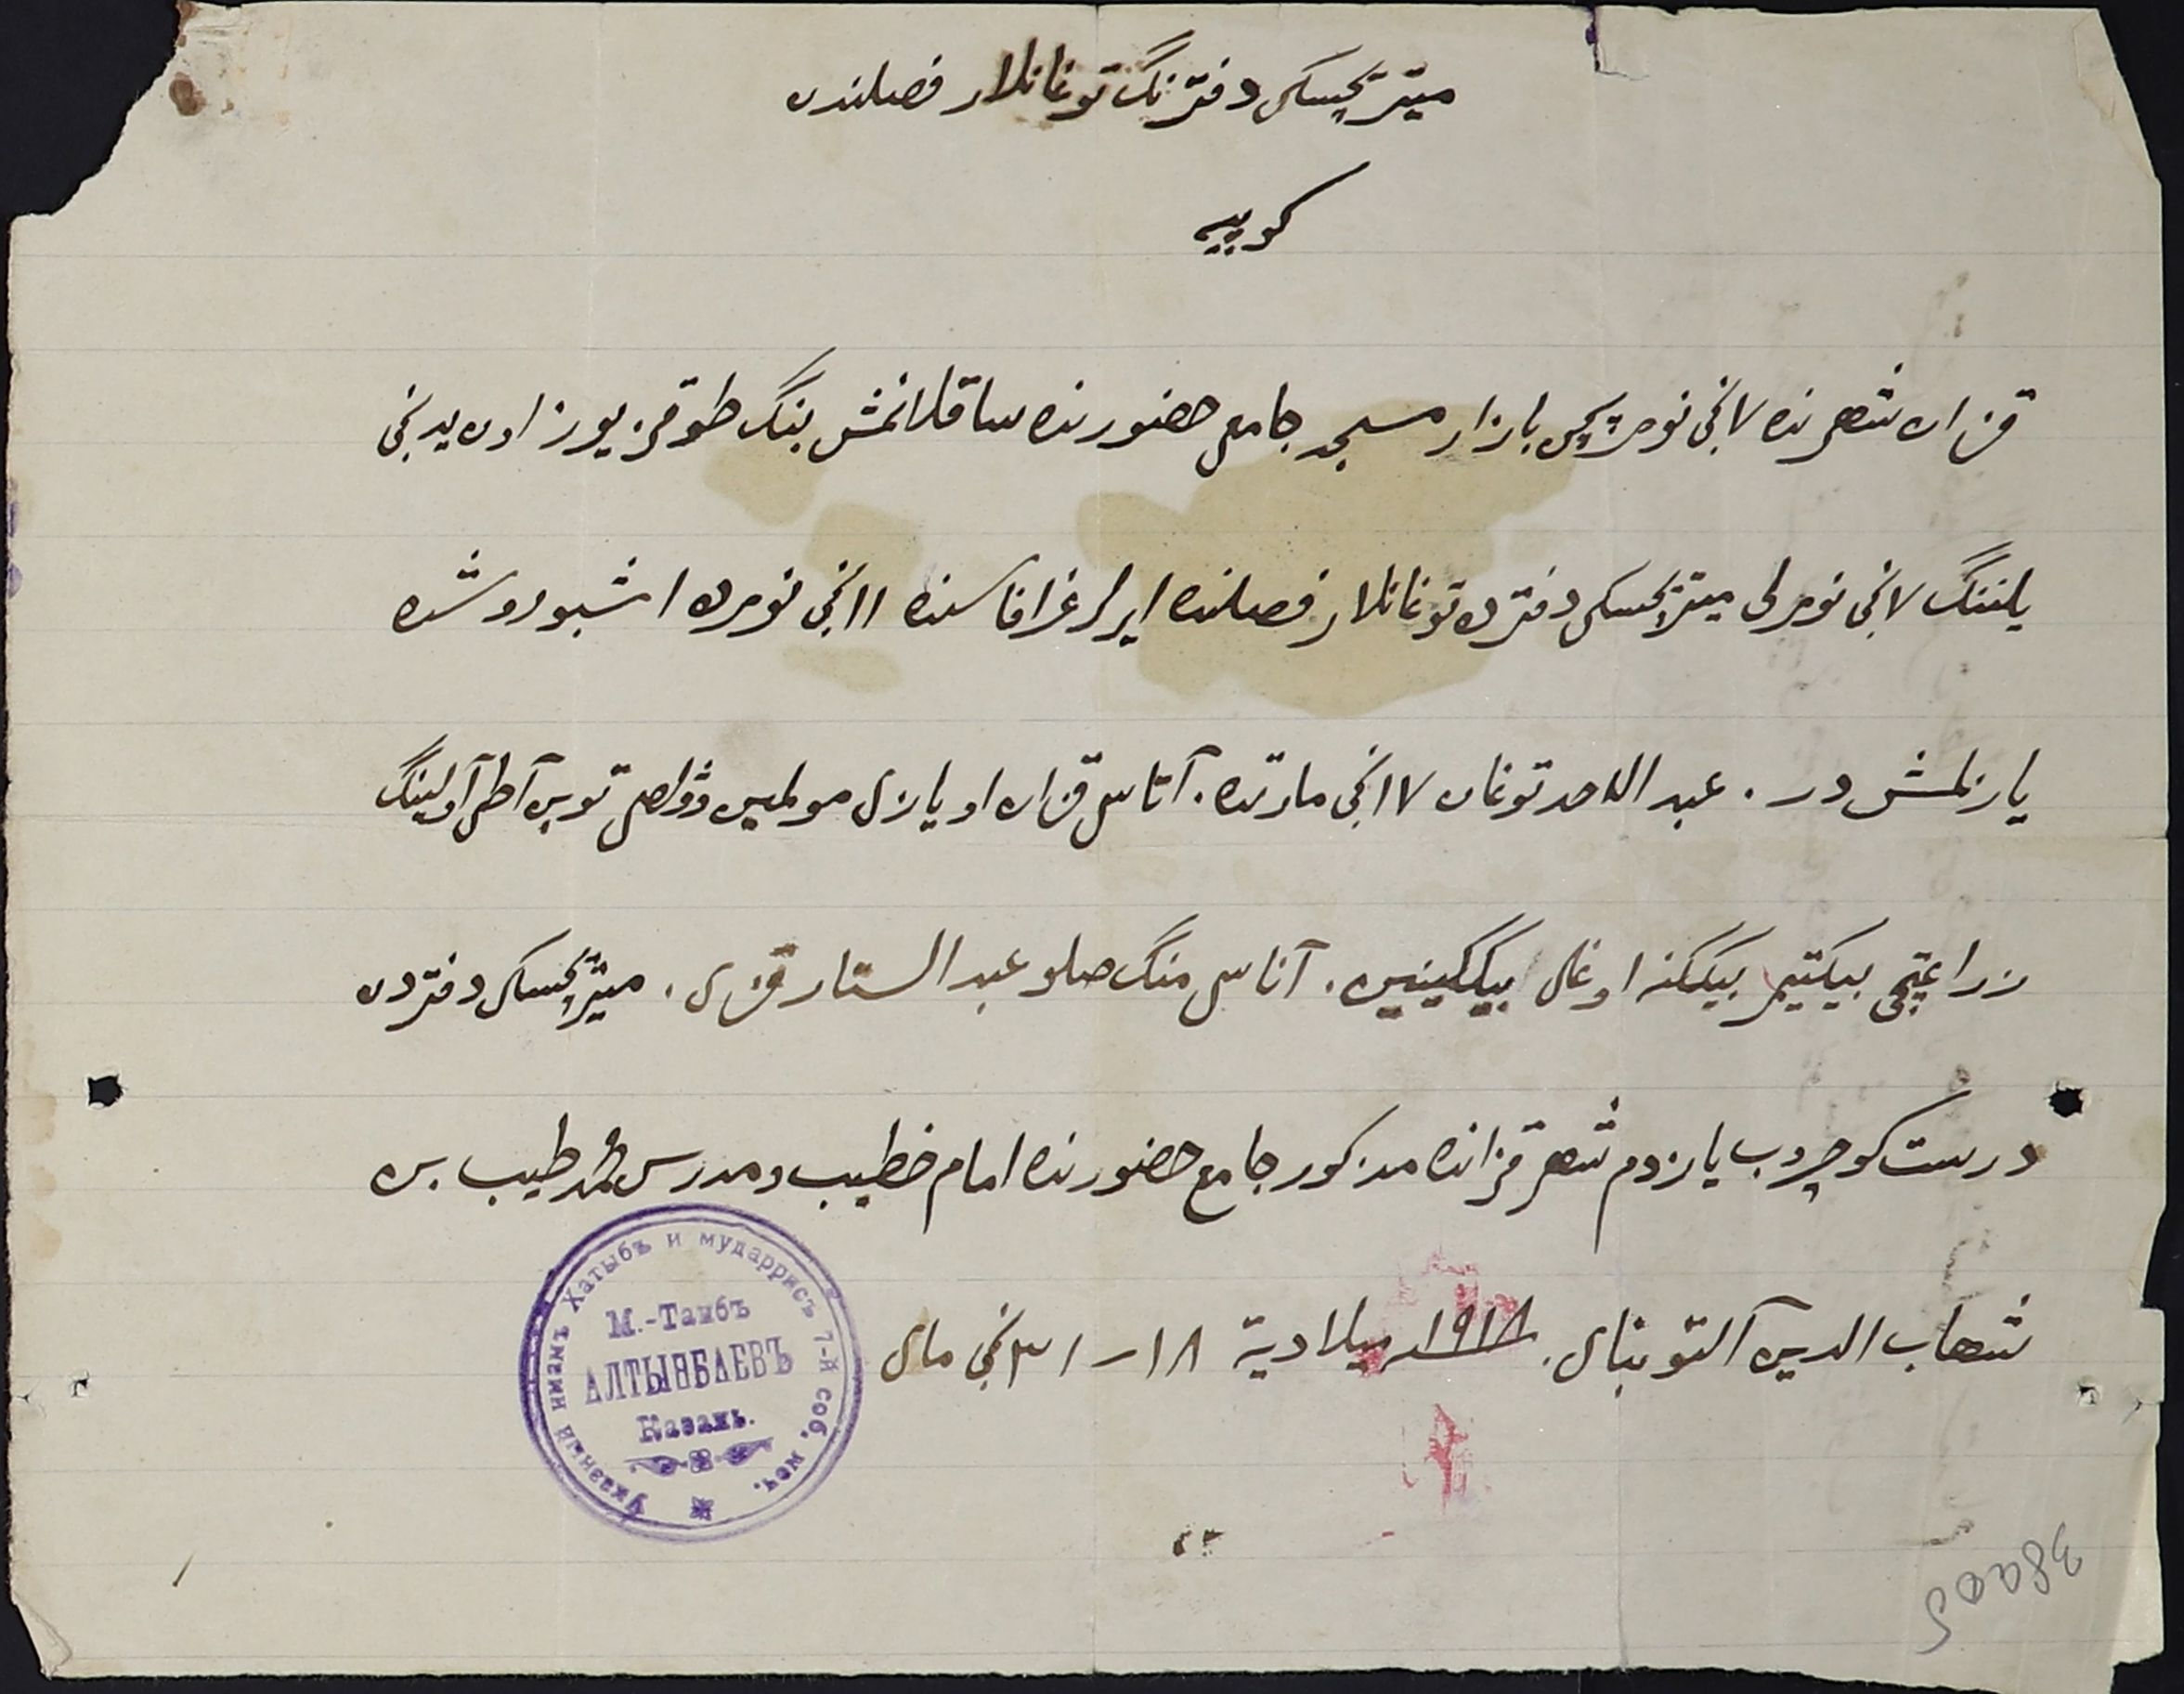 میتریچسکی دفترنگ توغانلار فصلندن
کوپیه
قزان شهرنده ٧نچی نومر پچن بازار مسجد جامع حضورنده ساقلانمش بنگ طوقز یوز اون یدنچی
یلننگ ٧نچی نومرلی میتریچسکی دفترده توغانلار فصلنده ایرلر غرافاسنده ١١نچی نومرده اشبو روشده
یازلمش در. عبد الاحد توغان ١٧نچی مارتده. آتاسی قزان اویازی آولینگ
زراعتچی بیکتیمر بیککنه اوغلی بیککینین. آناسی منگ صلو عبد الستار قزی. میتریچسکی دفتردن
درست کوچروب یازدم شهر قزانده مذکور جامع حضورنده امام خطیب و مدرس محمد طیب بن
شهاب الدین آلتونبای. ١٩١٨ میلادیة ١٨-٣١نچی مای
Указный имамъ Хатыбъ и мударрисъ 7-й соб. меч.
М.-Таибъ
АЛТЫНБАЕВЪ
Казань.
38005